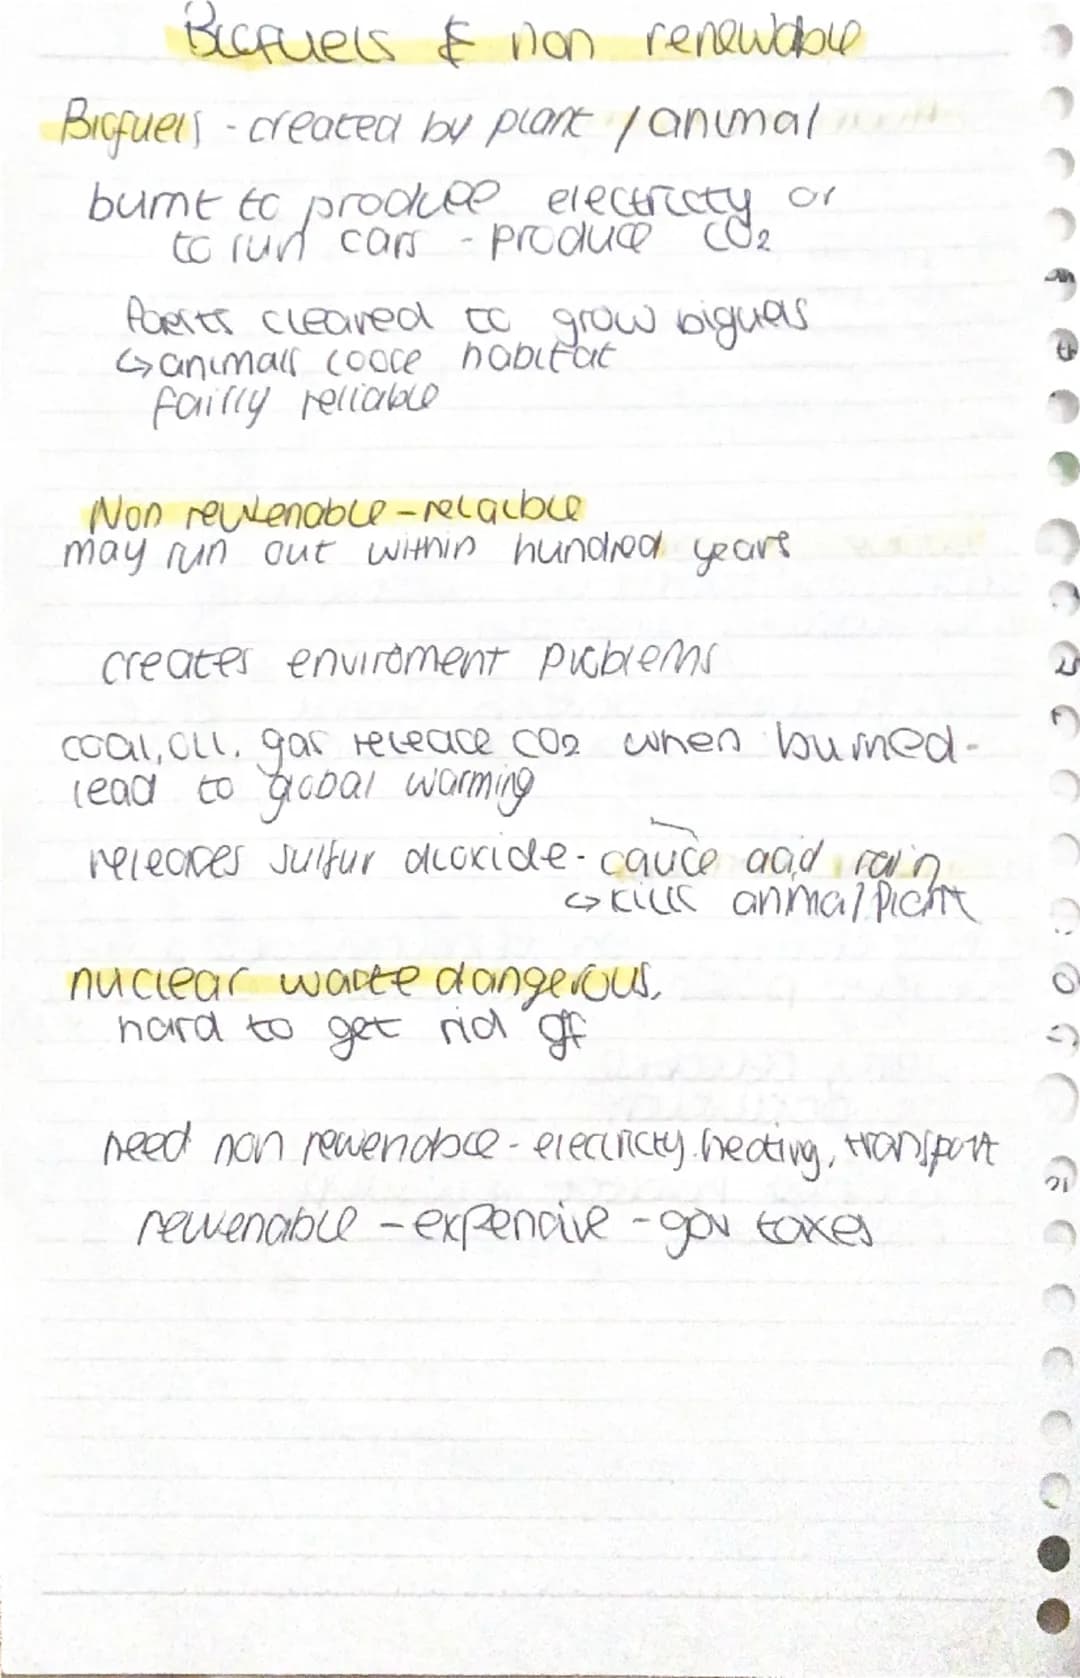 Biofuels & non renewable
Biofuels - created by plant / animal
burnt to produce electricty or
to run cars - produce CO2
Forests cleared to grow biguels
↳ animals loose habitat
fairly reliable
Non rewenable - relaible
may run out within hundred years
creates enviroment problems
coal, oil, gas release CO2 when burned -
lead to global warming
releases sulfur dioxide - cause acid rain
↳ kills anmal plant
nuclear waste dangerous,
hard to get rid of
need non rewenable - electricty, heating, transport
rewenable - expensive - gov taxes